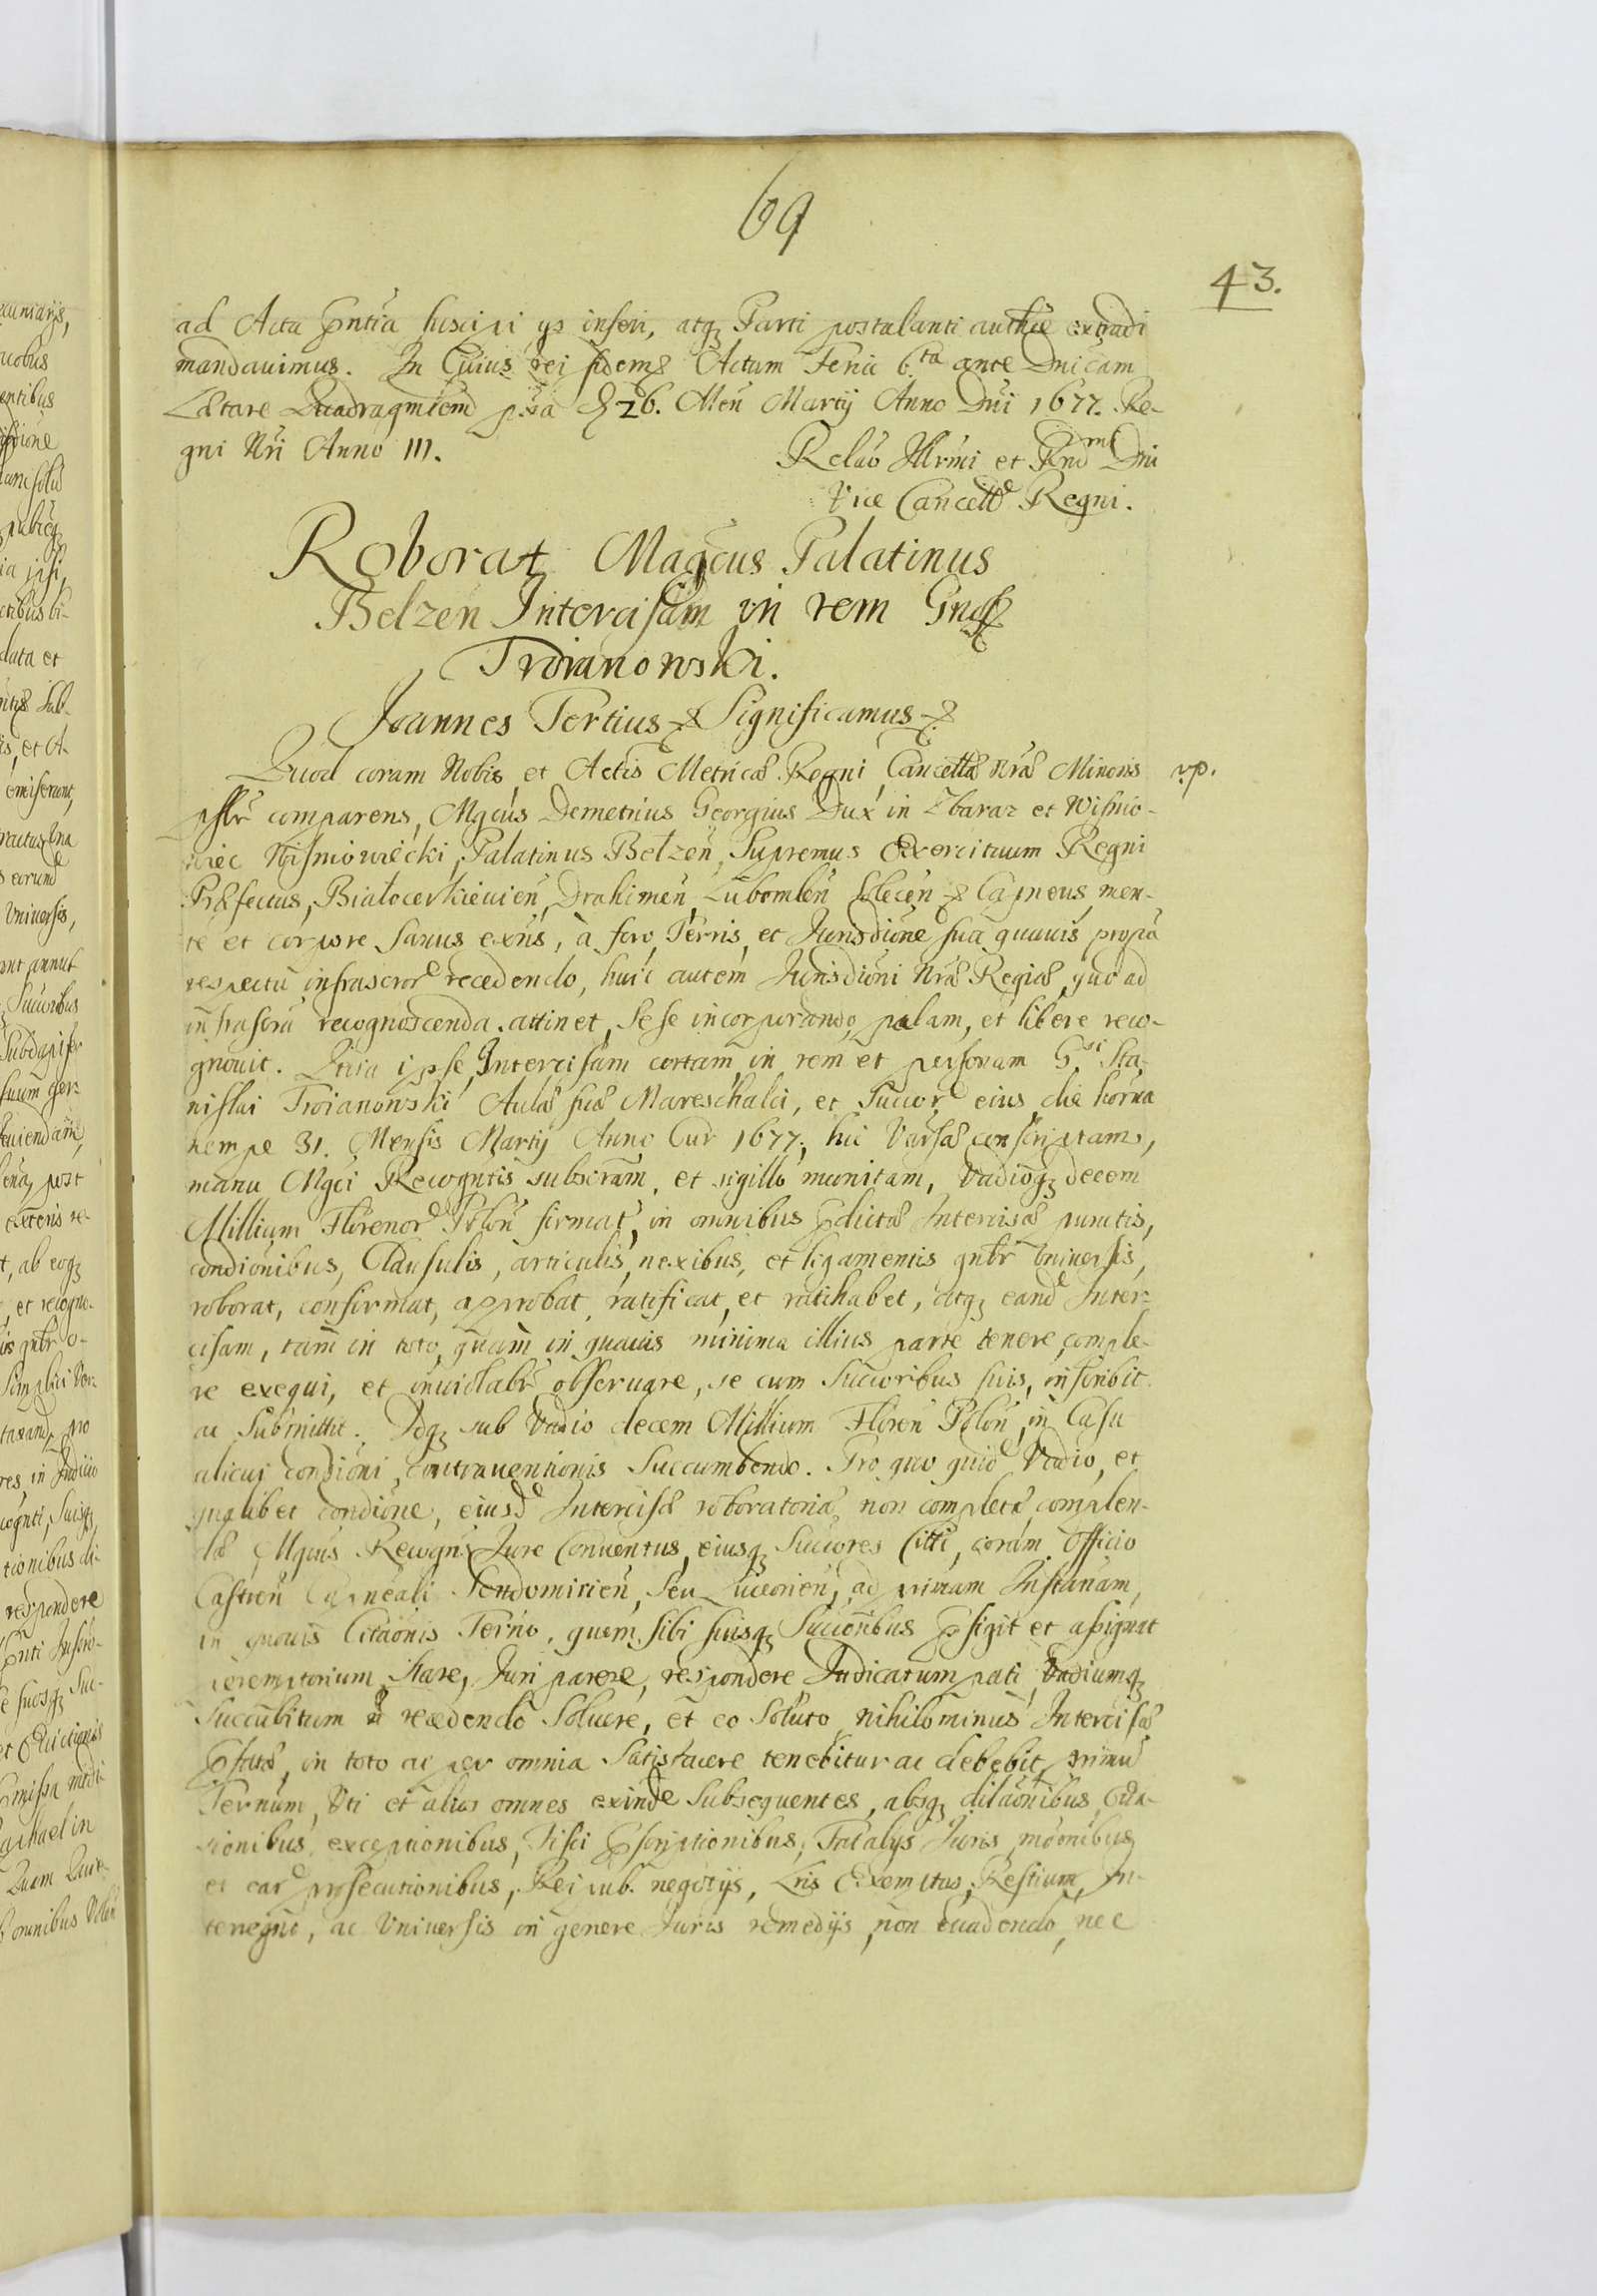 69
43.
ad Acta pñtia suscipi ijs inseri, atq₃ Parti postulanti authẽ extradi
mandauimus. In Cuius rei fidem Actum Feria 6.ta ante Dnicam
Lætare Quadragmlem 26. Meñ Martij Anno Dñi 1677. Re-
gni Nrĩ Anno III.
Relão Illrmi et Rndmi Dni
Vice Cancell Regni.
Roborat Magcus Palatinus
Belzeñ Intercisam in rem Gnsi
Troianowski.
Joannes Tertius Significamus
Quod coram Nobis, et Actis Metricæ Regni Cancellæ nræ Minoris
v.p.
psltr comparens, Mgcus Demetrius Georgius Dux in Zbaraz et Wisnio-
wiec Wisniowiecki, Palatinus Belzeñ, Supremus Exercituum Regni
Præfectus, Białocerkieuieñ, Drahimeñ, Lubomleñ Soleceñ Capneus, men-
te et corpore sanus exñs, à foro Terris, et Jurisdiõne sua quauis propa
respectu infrascror recedendo, huic autem Jurisdiõni Nræ Regiæ, quo ad
infrascra recognoscenda attinet, sese incorporando, palam, et libere reco-
gnouit. Quia ipse Intercisam certam in rem et personam G.si Sta-
nislai Troianowski Aulæ suæ Mareschalci, et Succor eius, die horna
nempe 31. Mensis Martij Anno Cur 1677. hic Varsæ conscriptam,
manu Mgci Recogntis subscram, et sigillo munitam, Vadioq₃ decem
Millium Florenor Poloñ firmat, in omnibus pdictæ Intercisæ punctis,
condiõnibus, Clausulis, articulis, nexibus, et ligamentis gnltr Vniuersis,
roborat, confirmat, approbat, ratificat, et ratihabet, atq₃ eand Inter-
cisam, tam in toto, quam in quauis minima illius parte tenere, comple-
re exequi, et inuiolabr obseruare, se cum Succoribus suis, inscribit
ac submittit. Idq₃ sub Vadio decem Millium Floreñ Poloñ, in Casu
alicui condiõni, contrauentionis Succumbendo. Pro quo quid Vadio, et
qualibet condiõne, eiusd Intercisæ roboratoriæ, non completæ, complen-
dæ Mgcus Recogns Jure Conuentus, eiusq₃ Succores Citti, coram Officio
Castreñ Capneali Sendomirieñ, seu Luceorieñ, ad primam Instanam,
in quouis Citaõnis Terño, quem sibi suisq₃ Succoribus pfigit et assignat
peremptorium, Stare, Juri parere, respondere, Judicatum pati, Vadiumq₃
Succubitum ñ recedendo Soluere, et eo Soluto nihilominus Intercisæ
pfatæ, in toto ac per omnia Satisfacere tenebitur ac debebit, primu
Ternum, Vti et alios omnes exinde Subsequentes, absq₃ dilaõnibus, Eua-
sionibus, exceptionibus, Fisci pscriptionibus, Fatalijs Juris, mõonibus
et ear prosecutionibus, Rei pub. negotijs, Lris Exemptus, Restium, In-
teregno, ac Vniuersis in genere Juris remedijs, non euadendo, nec